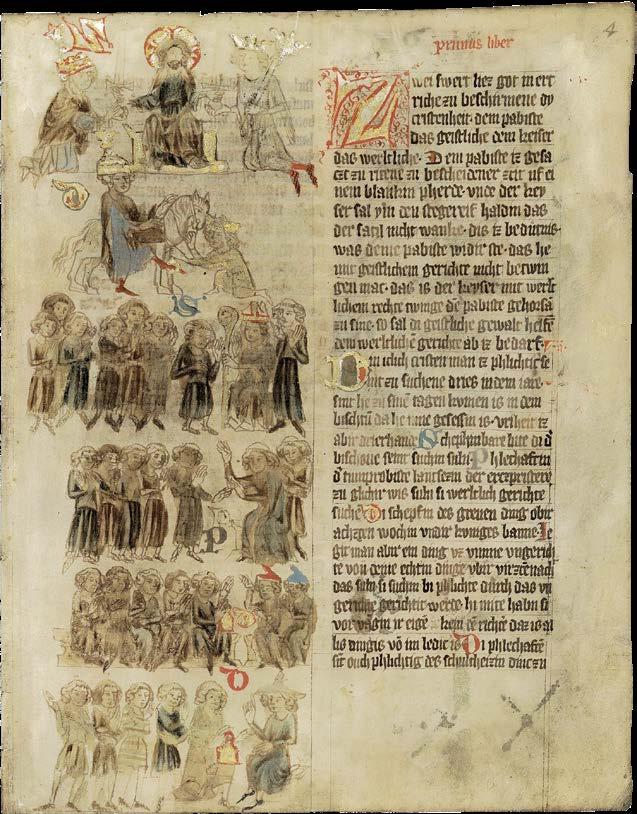 4
primus liber
Zwei swert liez got in ert
riche zu beschirmene dy
cristenheit· dem pabiste
das geistliche dem keiser
das werltliche· Dem pabiste iz gesa
czt zu ritene zu bescheidener zeit uf ei
nem blankin pherde· vnde der key
ser sal ym den stegereif haldin das
der satil nicht wanke· dis iz bedutnis·
was deme pabiste widir ste· das he
mit geistlichem gerichte nicht betwin
gen mac· das is der keyser mit werlt
lichem rechte twinge dē pabiste gehorsā
zu sine· so sal di geistliche gewalt helfē
dem werltlichē gerichte ab iz bedarf·
Din iclich cristen man iz phlichtic se
nit zu suchene dries in dem iare·
sint he zu sinē tagen komen is in dem
bischtū da he inne gesessin is· vriheit iz
abir drierhande Schephinbare lute di d'
bischoue senit suchin suln· Phlechaftin
d' tumprobiste lantsezin der erczpristere
zu glichir wis suln si werltlich gerichte
suche Di schepfin des greuen ding obir
achzen wochin vndir kuniges banne· Le
git man abir ein ding vz vmme vngerich
te von deme echtin dinge vbir virzennach
das suln si suchin di phlichte durch das vn
gerichte gerichtit werde· hi mite habn si
vor vāgin ir eigē kein ē richē daz is al
lis dingis vō im ledic is Di phlechaftē
sīt ouch phlichtig des schulcheizin dinc zu
S
P
D